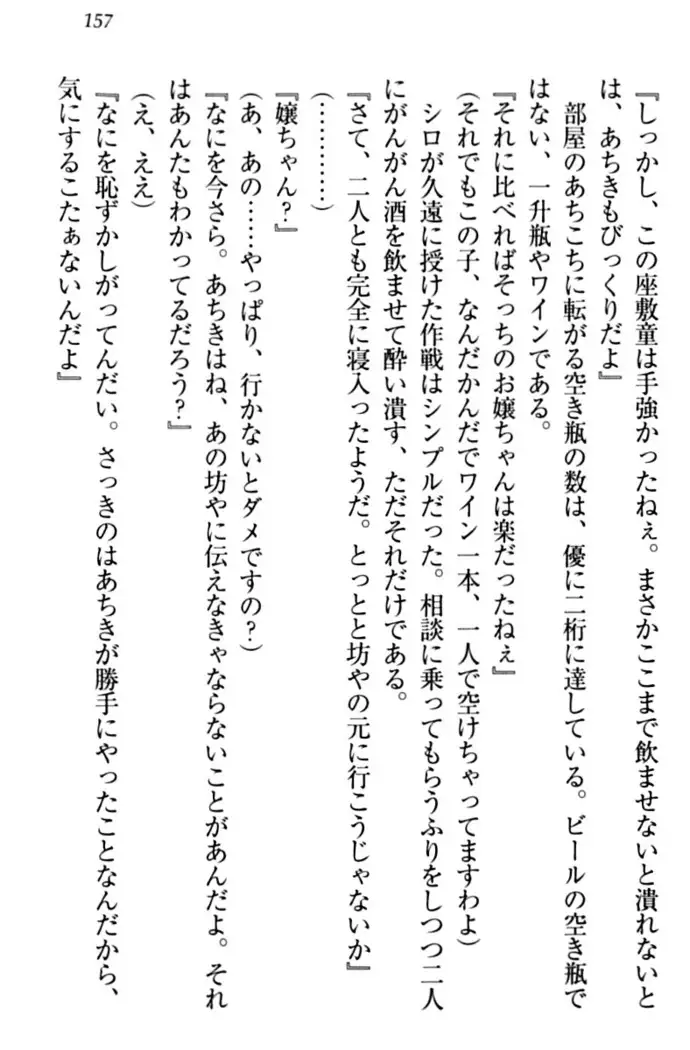 157
『しっかし、この座敷童は手強かったねぇ。まさかここまで飲ませないと潰れないと
は、あちきもびっくりだよ』
部屋のあちこちに転がる空き瓶の数は、優に二桁に達している。ビールの空き瓶で
はない、一升瓶やワインである。
『それに比べればそっちのお嬢ちゃんは楽だったねぇ』
(それでもこの子、なんだかんだでワイン一本、一人で空けちゃってますわよ)
シロが久遠に授けた作戦はシンプルだった。相談に乗ってもらうふりをしつつ二人
にがんがん酒を飲ませて酔い潰す、ただそれだけである。
『さて、二人とも完全に寝入ったようだ。とっとと坊やの元に行こうじゃないか』
(…………)
『嬢ちゃん?』
(あ、あの……やっぱり、行かないとダメですの?)
『なにを今さら。あちきはね、あの坊やに伝えなきゃならないことがあんだよ。それ
はあんたもわかってるだろう?』
(え、ええ)
『なにを恥ずかしがってんだい。さっきのはあちきが勝手にやったことなんだから、
気にするこたぁないんだよ』